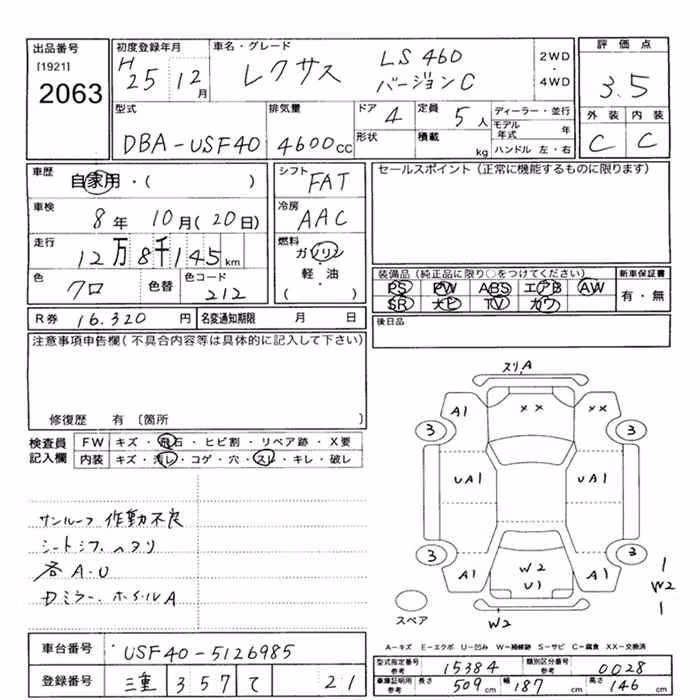 出品番号
[1921]
2063
初度登録年月
H
25 12月
車名・グレード
レクサス
LS 460
バージョンC
2WD
・
4WD
評価点
3.5
外装 内装
C C
型式
DBA-USF40
排気量
4600cc
ドア 4
形状
定員 5人
積載 kg
ディーラー・並行
モデル年式 年
ハンドル 左・右
車歴
自家用・( )
車検
8年 10月(20日)
走行
12万8千145km
色
クロ
色替
色コード
212
シフト
FAT
冷房
AAC
燃料
ガソリン
・
軽・油
( )
セールスポイント(正常に機能するものに限ります)
装備品(純正品に限り○をつけてください)
PS PW ABS エアB AW
SR ナビ TV カワ
新車保証書
有・無
R券 16.320 円
名変通知期限 月 日
後日品
注意事項申告欄(不具合内容等は具体的に記入して下さい)
修復歴 有〔箇所 〕
検査員
記入欄
FW キズ・飛石・ヒビ割・リペア跡・X要
内装 キズ・汚レ・コゲ・穴・スレ・キレ・破レ
サンルーフ 作動不良
シートシワ、ヘタリ
各A・U
Dミラー、ホイルA
スリ、A
A1 XX A1
3 3
UA1 UA1
3 3
A1 W2 U1 A1
W2
スペア
1
W2
1
A-キズ E-エクボ U-凹み W-補修跡 S-サビ C-腐食 XX-交換済
車台番号 USF40-5126985
登録番号 三重 357 て 21
型式指定番号 参考 15384
類別区分番号 参考 0028
車庫証明用 参考 長さ 509cm 幅 187cm 高さ 146cm